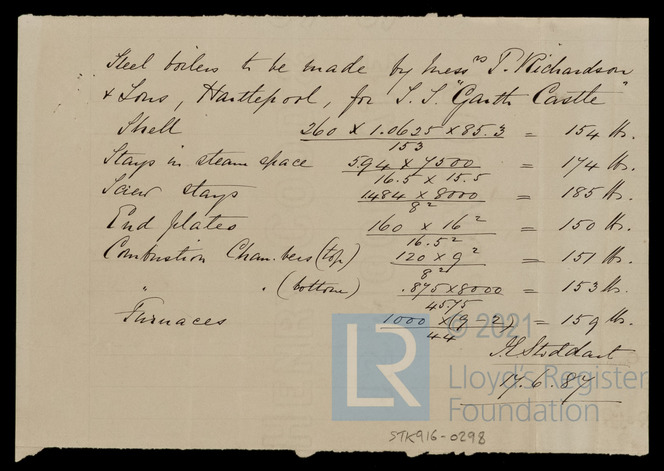 Steel boilers to be made by Messrs T. Richardson
& Sons, Hartlepool, for S.S. "Garth Castle"
Shell 260 x 1.0625 x 85.3 / 153 = 154 lbs.
Stays in steam space 5.94 x 7500 / 16.5 x 15.5 = 174 lbs.
Screw stays 1.484 x 8000 / 8² = 185 lbs.
End plates 160 x 16² / 16.5² = 150 lbs.
Combustion Chambers (top) 120 x 9² / 8² = 151 lbs.
" " (bottom) .875 x 8000 / 45.75 = 153 lbs.
Furnaces 1000 x (9 - 2) / 44 = 159 lbs.
Stoddart
17.6.87
LR
© 2021
Lloyd's Register
Foundation
STK916-0298